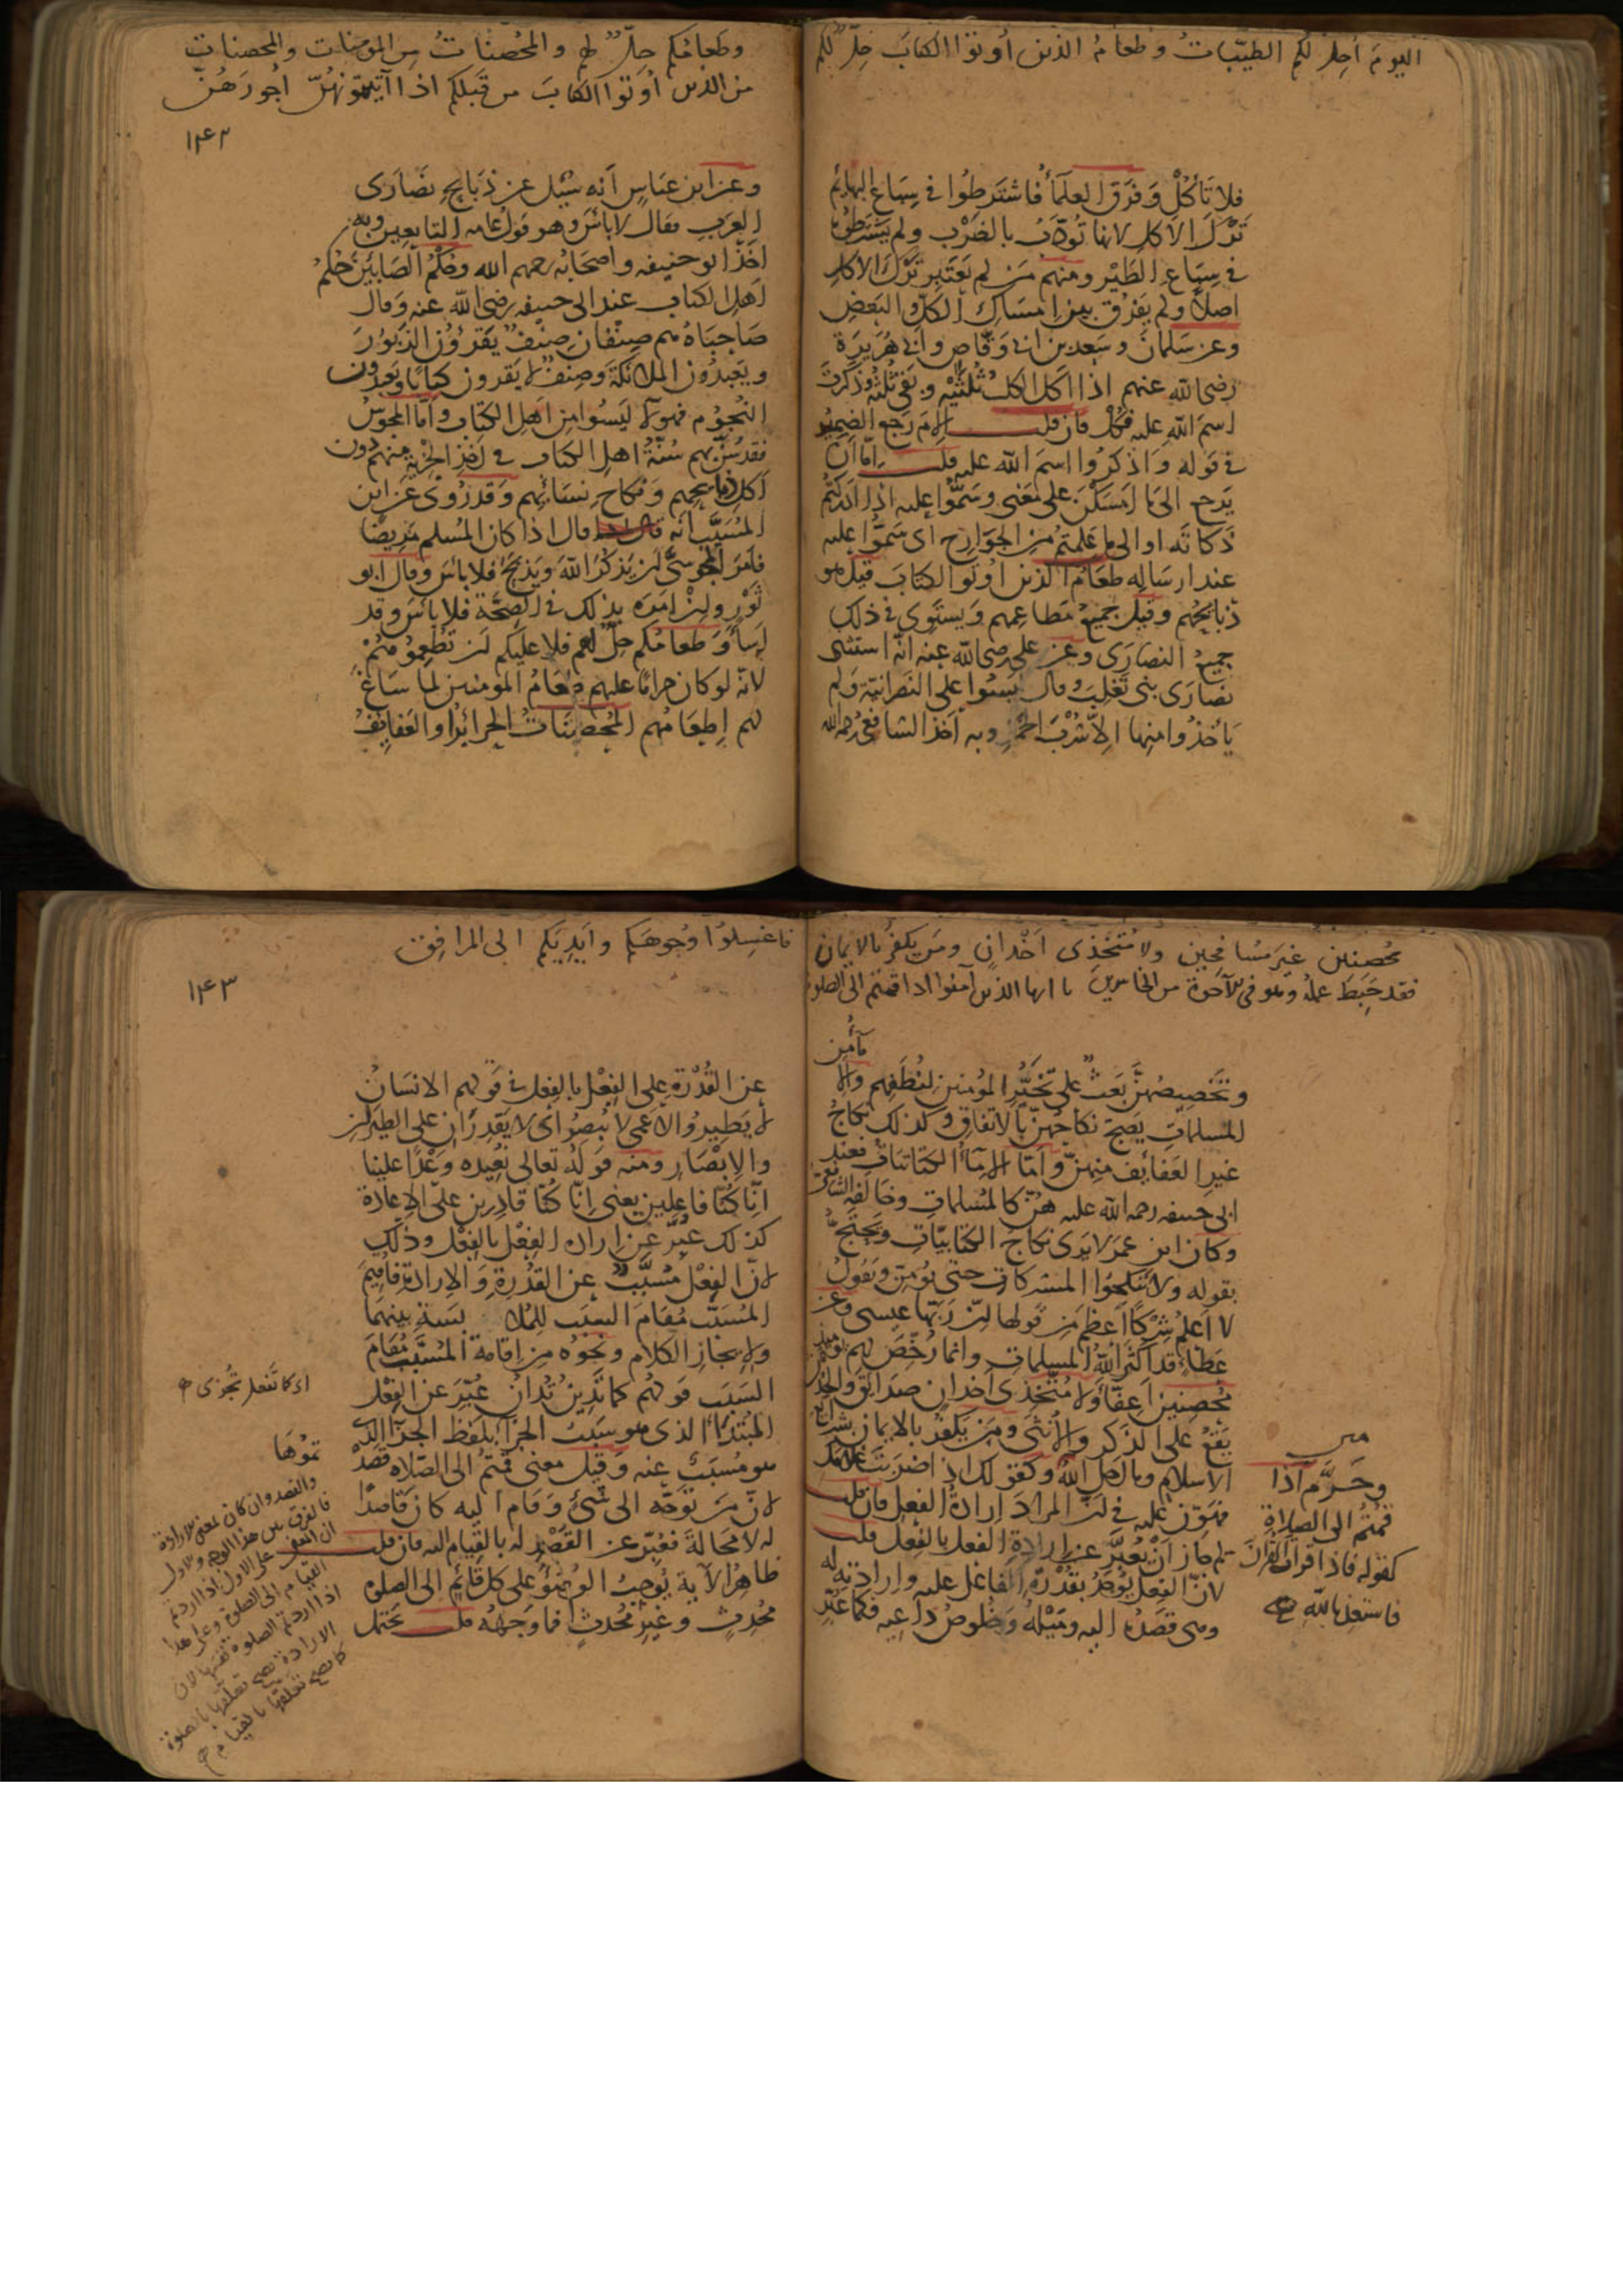 اليوم أحل لكم الطيبات وطعام الذين أوتوا الكتاب حل لكم
فلا تأكل وفرق العلماء فاشترطوا في سباع البهائم
ترك الاكل لانها تؤدب بالضرب ولم يشترطوه
في سباع الطير ومنهم من لم يعتبر ترك الاكل
اصلا ولم يفرق بين امساك الكل والبعض
وعن سلمان وسعد بن ابي وقاص وابي هريرة
رضي الله عنهم اذا اكل الكلب ثلثيه وبقي ثلثه وذكرت
اسم الله عليه فكل فان قلت الام رجع الضمير
في قوله واذكروا اسم الله عليه قلت اما ان
يرجع الى ما امسكن على معنى وسموا عليه اذا ادركتم
ذكاته او الى ما علمتم من الجوارح اي سموا عليه
عند ارساله طعام الذين اوتوا الكتاب قيل هو
ذبائحهم وقيل جميع مطاعمهم ويستوي في ذلك
جميع النصارى وعن علي رضي الله عنه انه استثنى
نصارى بني تغلب وقال ليسوا على النصرانية ولم
يأخذوا منها الا شرب الخمر وبه أخذ الشافعي رحمه الله
وطعامكم حل لهم والمحصنات من المؤمنات والمحصنات
من الذين أوتوا الكتاب من قبلكم اذا آتيتموهن اجورهن
١٤٢
وعن ابن عباس انه سئل عن ذبائح نصارى
العرب فقال لا بأس وهو قول عامة التابعين وبه
اخذ ابو حنيفه واصحابه رحمهم الله وحكم الصابئين حكم
اهل الكتاب عند ابي حنيفه رضي الله عنه وقال
صاحباه هم صنفان صنف يقرؤن الزبور
ويعبدون الملائكة وصنف لا يقرون كتابا ويعبدون
النجوم فهولاء ليسوا من اهل الكتاب واما المجوس
فقد سن بهم سنة اهل الكتاب في اخذ الجزية منهم دون
اكل ذبائحهم ونكاح نسائهم وقد روى عن ابن
المسيب انه قال اذا كان المسلم مريضا
فامر المجوسي ان يذكر الله ويذبح فلا بأس وقال ابو
ثور وان امره بذلك في الصحة فلا بأس وقد
اسآء وطعامكم حل لهم فلا عليكم ان تطعموهم
لانه لو كان حراما عليهم طعام المومنين لما ساغ
لهم اطعامهم المحصنات الحرائر او العفايف
محصنين غير مسافحين ولا متخذي اخدان ومن يكفر بالايمان
فقد حبط عمله وهو في الآخرة من الخاسرين يا ايها الذين آمنوا اذا قمتم الى الصلوة
مآمن
وتخصيصهن بعث على تخير المؤمنين لنطفهم والا
المسلمات يصح نكاحهن بالاتفاق وكذلك نكاح
غير العفائف منهن واما الامآء الكتابيات فعند
ابي حنيفه رحمه الله عليه هن كالمسلمات وخالفه الشافعي
وكان ابن عمر لا يرى نكاح الكتابيات ويحتج
بقوله ولا تنكحوا المشركات حتى يؤمن ويقول
لا اعلم شركا اعظم من قولها ان ربها عيسى وعن
عطاء قد اكثر الله المسلمات وانما رخص لهم يومئذ
محصنين اعفاء ولا متخذي اخدان صدائق والخدن
يقع على الذكر والانثى ومن يكفر بالايمان بشرائع
الاسلام وما احل الله وكقولك اذا ضربت غلامك
فهون عليه في ان المراد ارادة الفعل فان قلت
لم جاز ان يعبر عن ارادة الفعل بالفعل قلت
لان الفعل يوجد بقدرة الفاعل عليه وارادته له
وهي قصده اليه وميله وخلوص داعيه فكما عبر
وحرم اذا
قمتم الى الصلاة
كقوله فاذا قرأت القرآن
فاستعذ بالله
فاغسلوا وجوهكم وايديكم الى المرافق
١٤٣
عن القدرة على الفعل بالفعل في قولهم الانسان
لا يطير والاعمى لا يبصر اي لا يقدران على الطيران
والابصار ومنه قوله تعالى نعيده وعدا علينا
انا كنا فاعلين يعني انا كنا قادرين على الاعادة
كذلك عبر عن ارادة الفعل بالفعل وذلك
لان الفعل مسبب عن القدرة والارادة فاقيم
المسبب مقام السبب للملابسة بينهما
ولايجاز الكلام ونحوه من اقامة المسبب مقام
السبب قولهم كما تدين تدان عبر عن الفعل
المبتدأ الذي هو سبب الجزآ بلفظ الجزآ الذي
هو مسبب عنه وقيل معنى قمتم الى الصلاه قصدتموها
لان من توجه الى شئ وقام اليه كان قاصدا
له لا محالة فعبر عن القصد له بالقيام اليه فان قلت
ظاهر الآية يوجب الوضوء على كل قائم الى الصلوه
محدث وغير محدث فما وجهه قلت يحتمل
اي كما تفعل تجزى
والقصد وان كان بمعنى الارادة
فالفرق بين هذا الوجه والاول
ان المعنى على الاول اذا اردتم
القيام الى الصلوة وعلى هذا
اذا اردتم الصلوة نفسها لان
الارادة يصح تعلقها بالصلوة
كما يصح تعلقها بالقيام